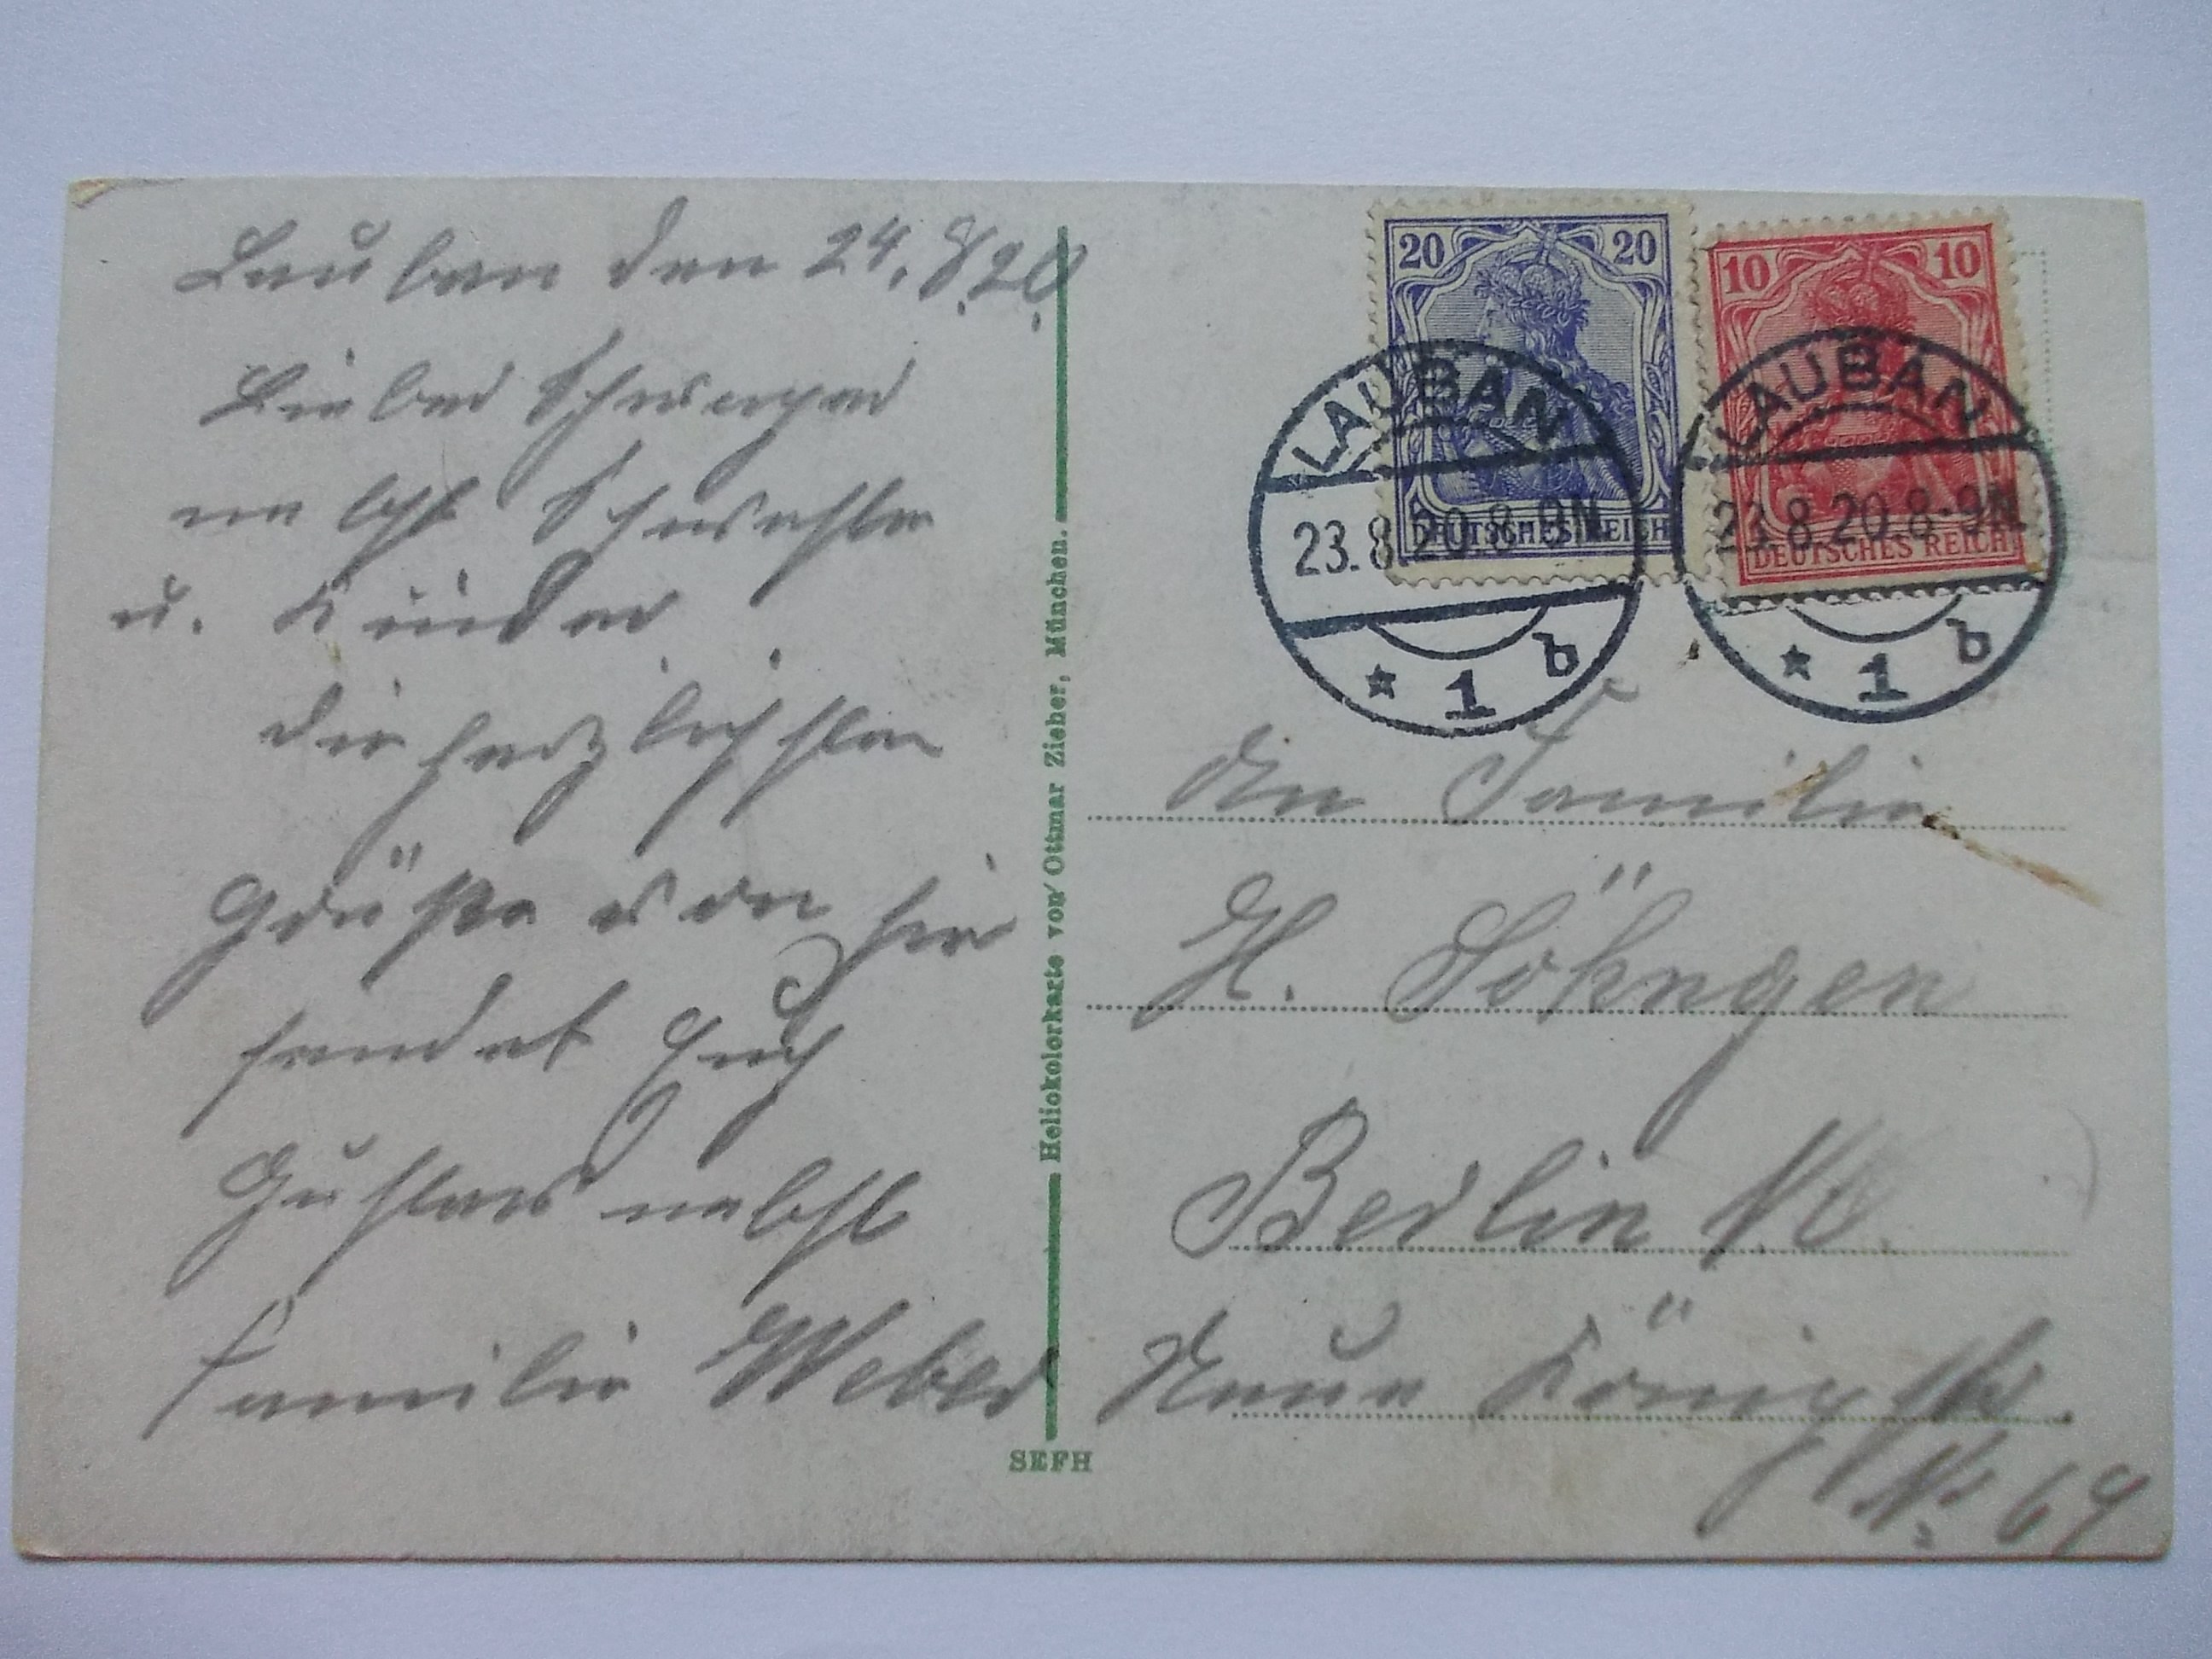 Lauban den 24.8.20.
Lieber Schwager
nebst Schwester
u. Kinder
die herzlichsten
Grüße von hier
sendet Euch
Gustav nebst
Familie Weber
Heliokolorkarte von Ottmar Zieher, München.
SEFH
20 20
DEUTSCHES REICH
10 10
DEUTSCHES REICH
LAUBAN
23.8.20.8-9N.
* 1 b
LAUBAN
23.8.20.8-9N.
* 1 b
An Familie
H. Söhngen
Berlin NO.
Neue Königstr.
Nr. 69